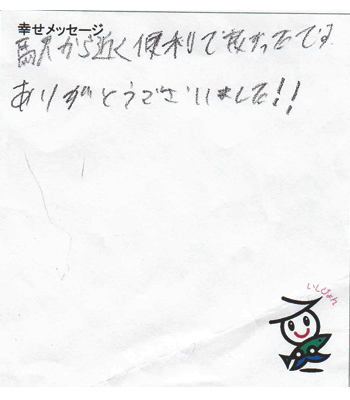 幸せメッセージ
駅から近く便利で良かったです
ありがとうございました!!
いしぴょん